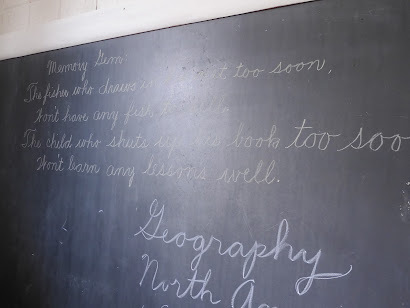 Memory Gem:
The fisher who draws in his net too soon,
Won't have any fish to sell.
The child who shuts up his book too soo
Won't learn any lessons well.
Geography
North Am